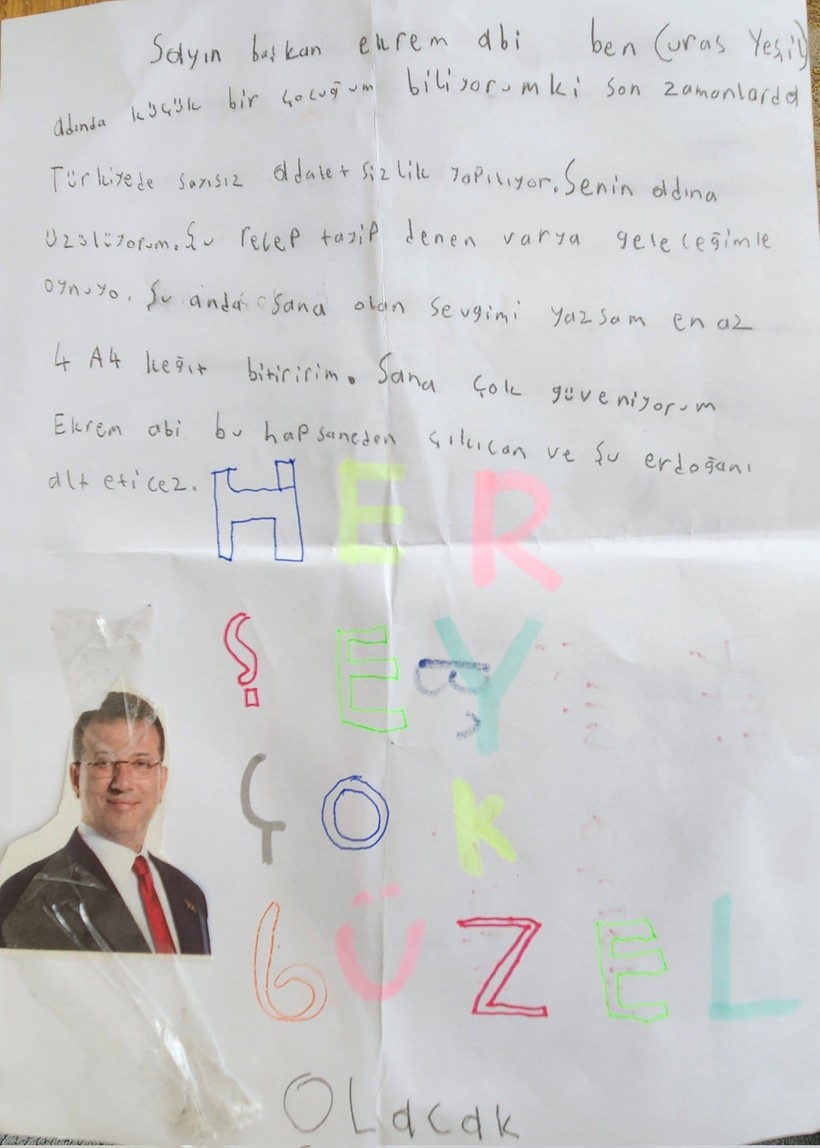 Sayın başkan ekrem abi ben (uras Yeşil)
adında küçük bir çocuğum biliyorumki son zamanlarda
Türkiyede sayısız adaletsizlik yapılıyor. Senin adına
üzülüyorum. Şu recep tayip denen varya geleceğimle
oynuyo. Şu anda sana olan sevgimi yazsam en az
4 A4 keğıt bitiririm. Sana çok güveniyorum
Ekrem abi bu hapsaneden çıkıcan ve şu erdoğanı
alt eticez.
HER
ŞEY
ÇOK
GÜZEL
OLacak